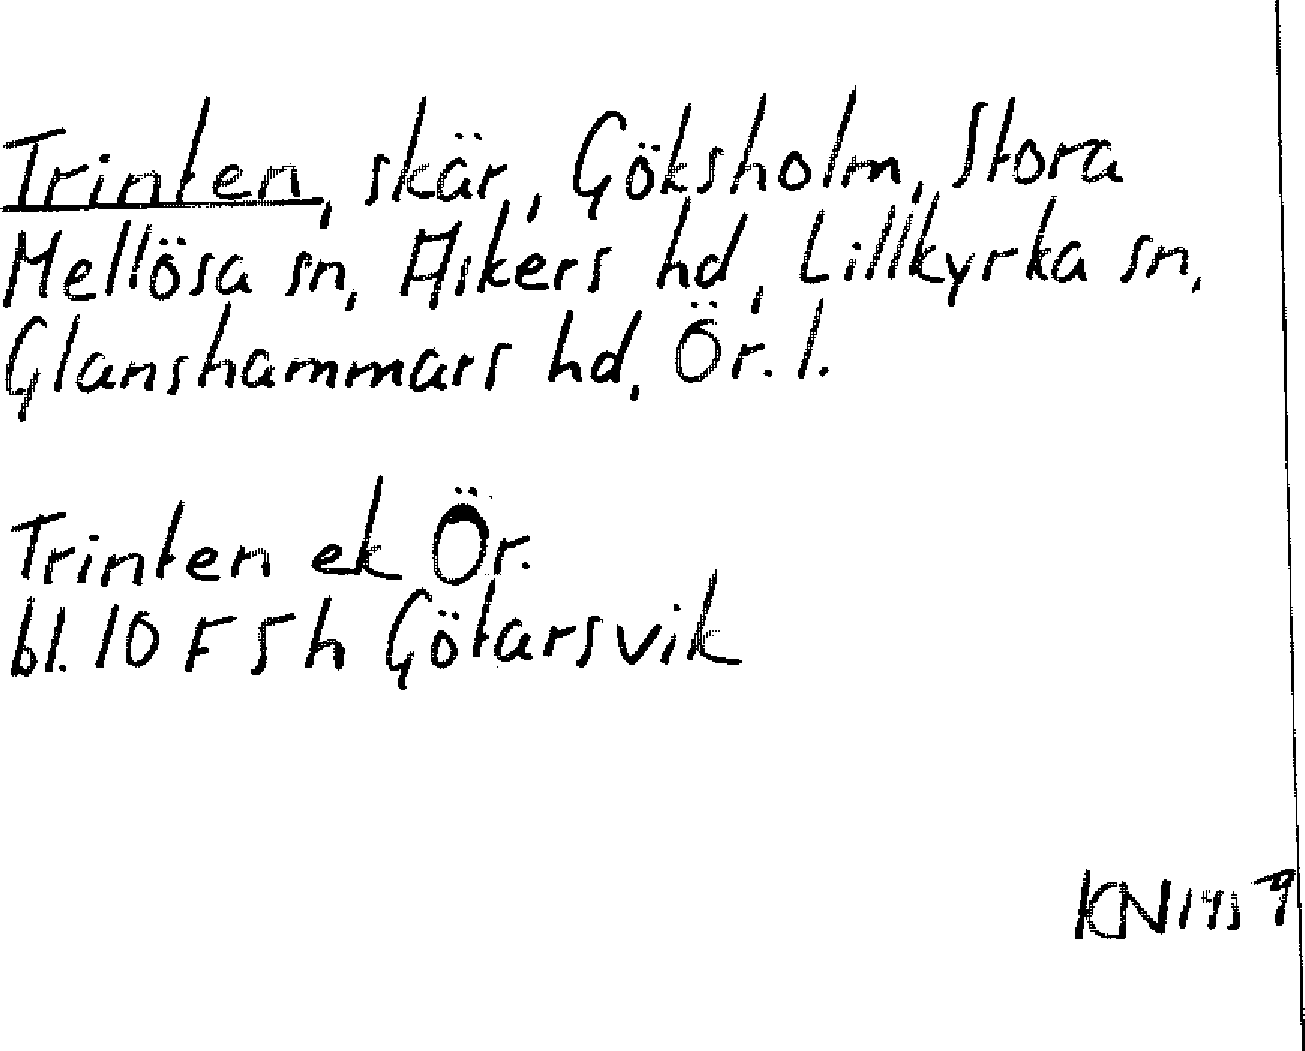 Trinten, skär, Göksholm, Stora
Mellösa sn, Askers hd, Lillkyrka sn,
Glanshammars hd, Ör. l.
Trinten ek Ör.
bl. 10 F 5 h Götarsvik
KN